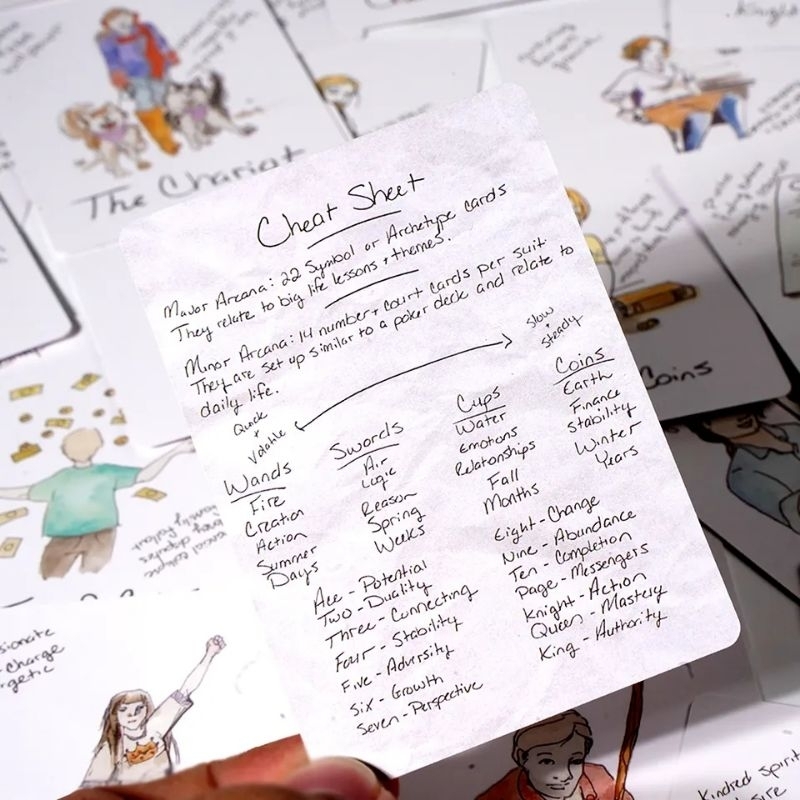 The Chariot
Cheat Sheet
Major Arcana: 22 Symbol or Archetype cards
They relate to big life lessons + themes.
Minor Arcana: 14 number + court cards per suit
They are set up similar to a poker deck and relate to
daily life.
Quick
+
Volatile
Slow
+
Steady
Wands
Fire
Creation
Action
Summer
Days
Swords
Air
Logic
Reason
Spring
Weeks
Cups
Water
Emotions
Relationships
Fall
Months
Coins
Earth
Finance
Stability
Winter
Years
Ace - Potential
Two - Duality
Three - Connecting
Four - Stability
Five - Adversity
Six - Growth
Seven - Perspective
Eight - Change
Nine - Abundance
Ten - Completion
Page - Messengers
Knight - Action
Queen - Mastery
King - Authority
Coins
Charge
Kindred Spirit